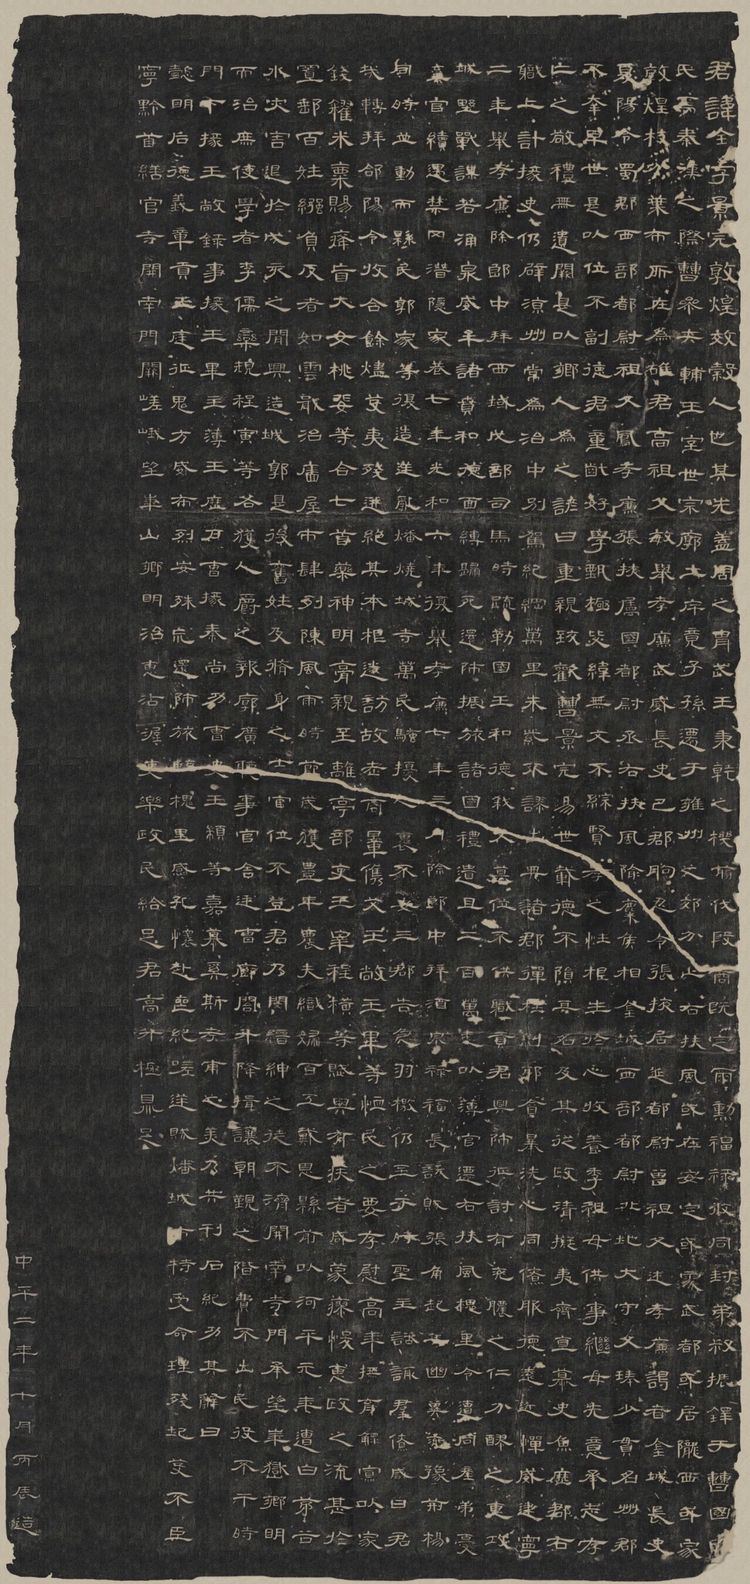 君諱全字景完敦煌效穀人也其先蓋周之胄武王秉乾之機翦伐殷商既定爾勳福祿攸同封弟叔振鐸于曹國因
氏焉秦漢之際曹參夾輔王室世宗廓土斥竟子孫遷于雍州之郊分止右扶風或在安定或處武都或居隴西或家
敦煌枝分葉布所在為雄君高祖父敏舉孝廉武威長史巴郡朐忍令張掖居延都尉曾祖父述孝廉謁者金城長史
夏陽令蜀郡西部都尉祖父鳳孝廉張掖屬國都尉丞右扶風隃麋侯相金城西部都尉北地大守父琫少貫名州郡
不幸早世是以位不副德君童齔好學甄極毖緯無文不綜賢孝之性根生於心收養季祖母供事繼母先意承志存
亡之敬禮無遺闕是以鄉人為之諺曰重親致歡曹景完易世載德不隕其名及其從政清擬夷齊直慕史魚歷郡右
職上計掾史仍辟涼州常為治中別駕紀綱萬里朱紫不謬出典諸郡彈枉糾邪貪暴洗心同僚服德遠近憚威建寧
二年舉孝廉除郎中拜西域戊部司馬時疏勒國王和德弒父篡位不供職貢君興師征討有兗膿之仁分醪之惠攻
城野戰謀若涌泉威牟諸賁和德面縛歸死還師振旅諸國禮遺且二百萬悉以薄官遷右扶風槐里令遭同產弟憂
棄官續遇禁冈潛隱家巷七年光和六年復舉孝廉七年三月除郎中拜酒泉祿福長訞賊張角起兵幽冀兗豫荊楊
同時並動而縣民郭家等復造逆亂燔燒城寺萬民騷擾人裹不安三郡告急羽檄仍至于時聖主諮諏群僚咸曰君
哉轉拜郃陽令收合餘燼芟夷殘迸絕其本根遂訪故老商量儁艾王敞王畢等恤民之要存慰高年撫育鰥寡以家
錢糴米粟賜瘩盲大女桃婓等合七首藥神明膏親至離亭部吏王宰程橫等賦與有疾者咸蒙瘳悛惠政之流甚於
置郵百姓繈負反者如雲戢治廧屋市肆列陳風雨時節歲獲豐年農夫織婦百工戴恩縣前以河平元年遭白茅谷
水災害退於戌亥之間興造城郭是後舊姓及脩身之士官位不登君乃閔縉紳之徒不濟開南寺門承望華嶽鄉明
而治庶使學者李儒欒規程寅等各獲人爵之報廓廣聽事官舍廷曹廊閣升降揖讓朝覲之階費不出民役不干時
門下掾王敞錄事掾王畢主薄王歷戶曹掾秦尚功曹史王顓等嘉慕奚斯考甫之美乃共刊石紀功其辭曰
懿明后德義章貢王庭征鬼方威布烈安殊巟還師旅臨槐里感孔懷赴喪紀嗟逆賊燔城市特受命理殘圮芟不臣
寧黔首繕官寺開南門闕嵯峨望華山鄉明治惠沾渥吏樂政民給足君高升極鼎足
中平二年十月丙辰造